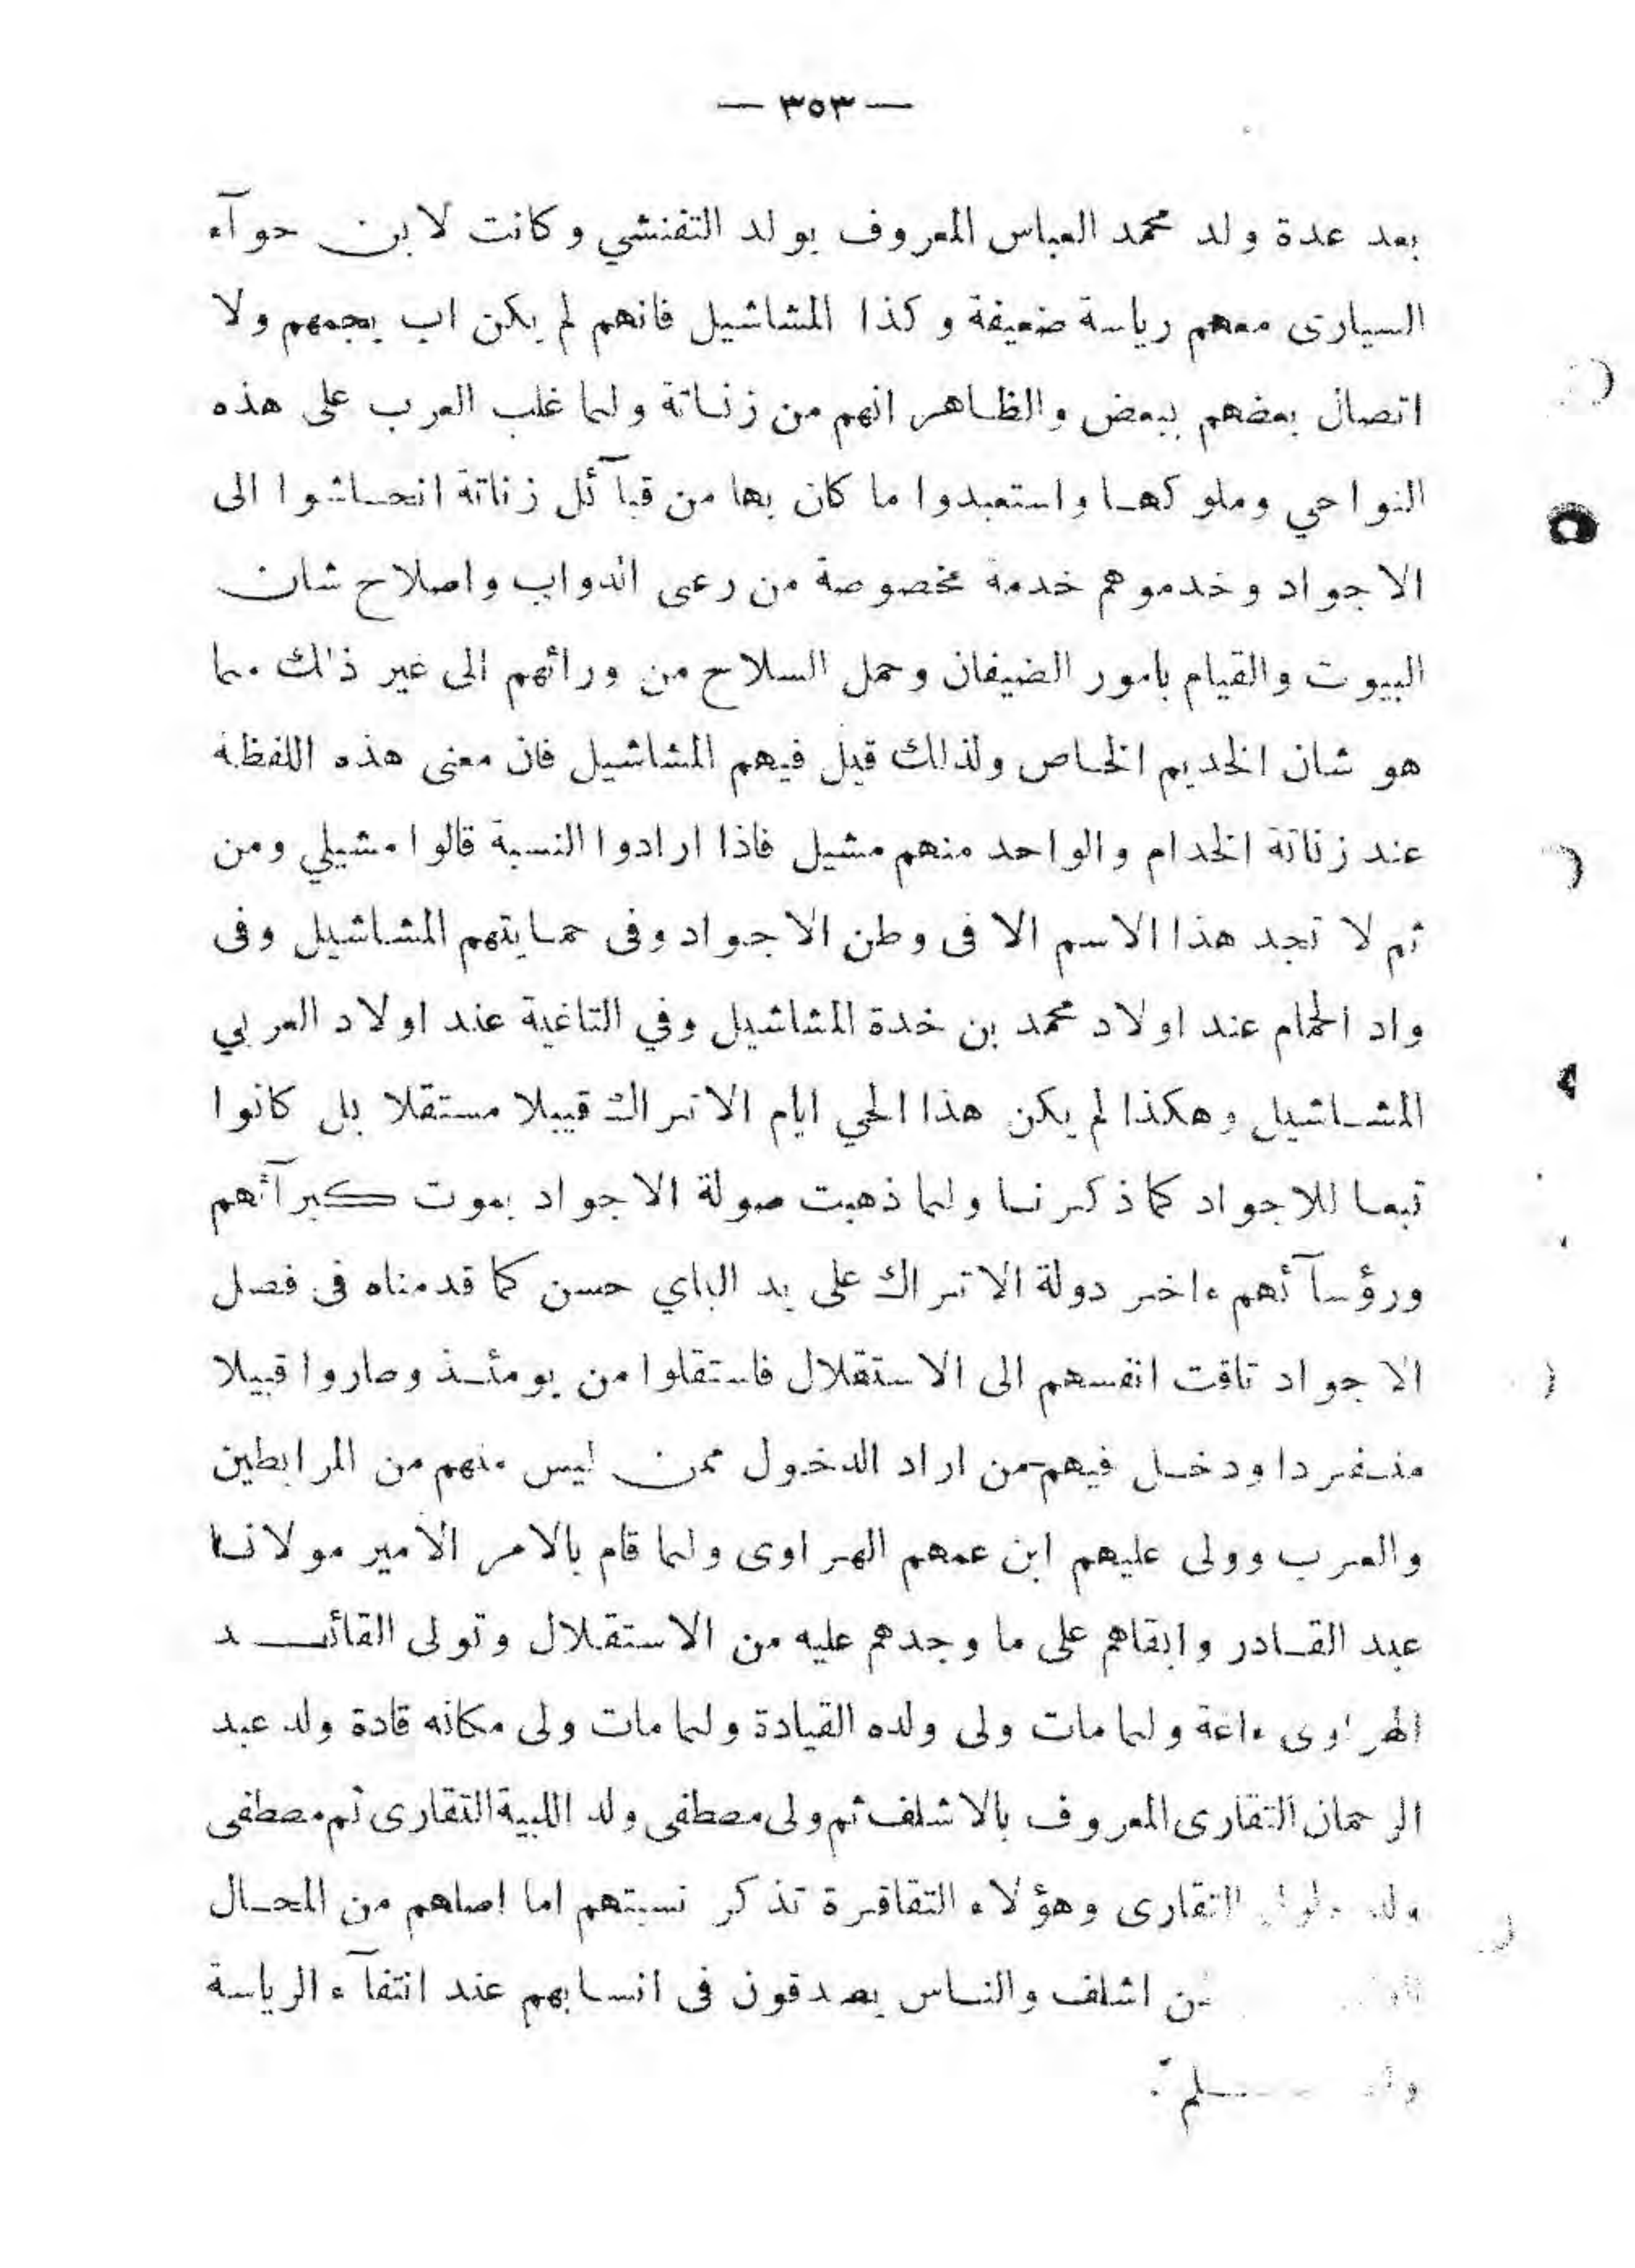 — ٣٥٣ —
بعد عدة ولد محمد العباس المعروف بولد التفنشي وكانت لابن حوآء
السيارى معهم رياسة ضعيفة وكذا المشاشيل فانهم لم يكن اب يجمعهم ولا
اتصال بعضهم ببعض والظاهر انهم من زناتة ولما غلب العرب على هذه
النواحي وملوكها واستعبدوا ما كان بها من قبآئل زناتة انحاشوا الى
الاجواد وخدموهم خدمة مخصوصة من رعى الدواب واصلاح شان
البيوت والقيام بامور الضيفان وحمل السلاح من ورائهم الى غير ذلك مما
هو شان الخديم الخاص ولذلك قيل فيهم المشاشيل فان معنى هذه اللفظة
عند زناتة الخدام والواحد منهم مشيل فاذا ارادوا النسبة قالوا مشيلي ومن
ثم لا تجد هذا الاسم الا فى وطن الاجواد وفى حمايتهم المشاشيل وفى
واد الحمام عند اولاد محمد بن خدة المشاشيل وفي التاغية عند اولاد العربي
المشاشيل وهكذا لم يكن هذا الحي ايام الاتراك قبيلا مستقلا بل كانوا
تبعا للاجواد كما ذكرنا ولما ذهبت صولة الاجواد بموت كبرآئهم
ورؤسآئهم ءاخر دولة الاتراك على يد الباي حسن كما قدمناه فى فصل
الاجواد تاقت انفسهم الى الاستقلال فاستقلوا من يومئذ وصاروا قبيلا
منفردا ودخل فيهم من اراد الدخول ممن ليس منهم من المرابطين
والعرب وولى عليهم ابن عمهم الهراوى ولما قام بالامر الامير مولانا
عبد القادر وابقاهم على ما وجدهم عليه من الاستقلال وتولى القائد
الهراوى ءاعة ولما مات ولى ولده القيادة ولما مات ولى مكانه قادة ولد عبد
الرحمان التقارى المعروف بالاشلف ثم ولى مصطفى ولد اللبية التقارى ثم مصطفى
ولد التقارى وهؤلاء التقاقرة تذكر نسبتهم اما اصلهم من المحال
من اشلف والناس يصدقون فى انسابهم عند انتفآء الرياسة